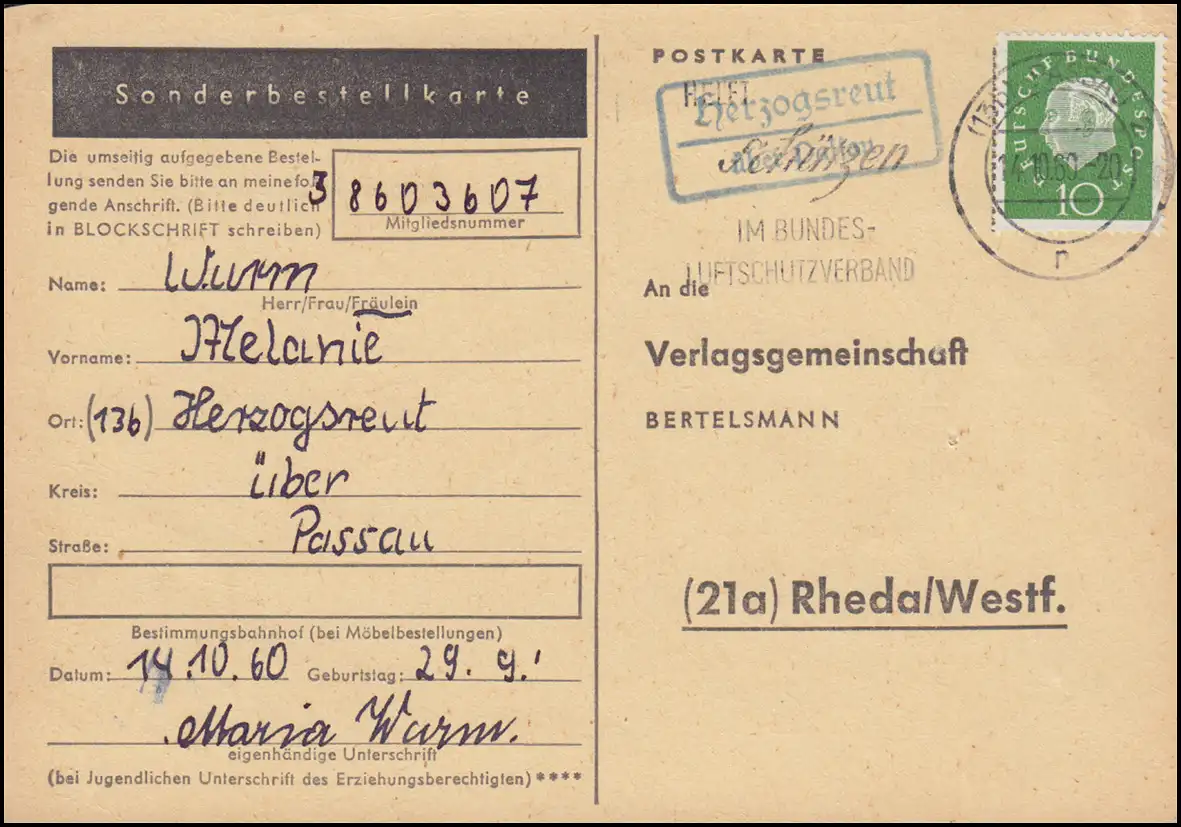 Sonderbestellkarte
Die umseitig aufgegebene Bestel-
lung senden Sie bitte an meine fol-
gende Anschrift. (Bitte deutlich
in BLOCKSCHRIFT schreiben)
3 8603607
Mitgliedsnummer
Name: Wurm
Herr/Frau/Fräulein
Vorname: Melanie
Ort: (13b) Herzogsreut
Kreis: über
Straße: Passau
Bestimmungsbahnhof (bei Möbelbestellungen)
Datum: 14.10.60 Geburtstag: 29. 9.'
Maria Wurm.
eigenhändige Unterschrift
(bei Jugendlichen Unterschrift des Erziehungsberechtigten) ****
POSTKARTE
HELFT
Herzogsreut
über
IM BUNDES-
LUFTSCHUTZVERBAND
DEUTSCHE BUNDESPOST
10
(13b)
14.10.60.-20
r
An die
Verlagsgemeinschaft
BERTELSMANN
(21a) Rheda/Westf.